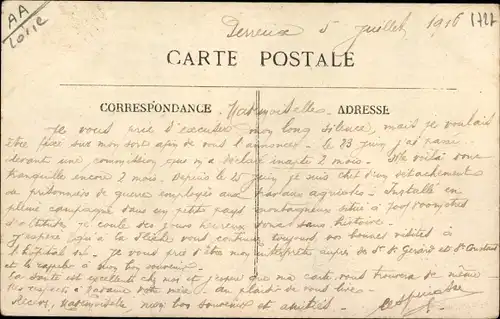 AA
Loire
1727
Perreux 5 Juillet 1916
CARTE POSTALE
CORRESPONDANCE ADRESSE
Mademoiselle,
Je vous prie d'excuser mon long silence, mais je voulais
être fixé sur mon sort afin de vous l'annoncer. Le 23 Juin j'ai passé
devant une commission qui m'a déclaré inapte 2 mois. Me voilà donc
tranquille encore 2 mois. Depuis le 25 Juin je suis chef d'un détachement
de prisonniers de guerre employés aux travaux agricoles. Installé en
pleine campagne dans un petit pays montagneux situé à 700/800 mètres
d'altitude, je coule des jours heureux sans histoire.
J'espère qu'à la Flèche vous continuez toujours vos bonnes visites à
l'hôpital. Je vous prie d'être mon interprète auprès de St Gérard et St Constant
et rappeler à eux bon souvenir.
La santé est excellente chez moi et j'espère que ma carte vous trouvera de même
Mes respects à Madame votre mère. Au plaisir de vous lire.
Recevez, Mademoiselle, mon bon souvenir et amitiés.